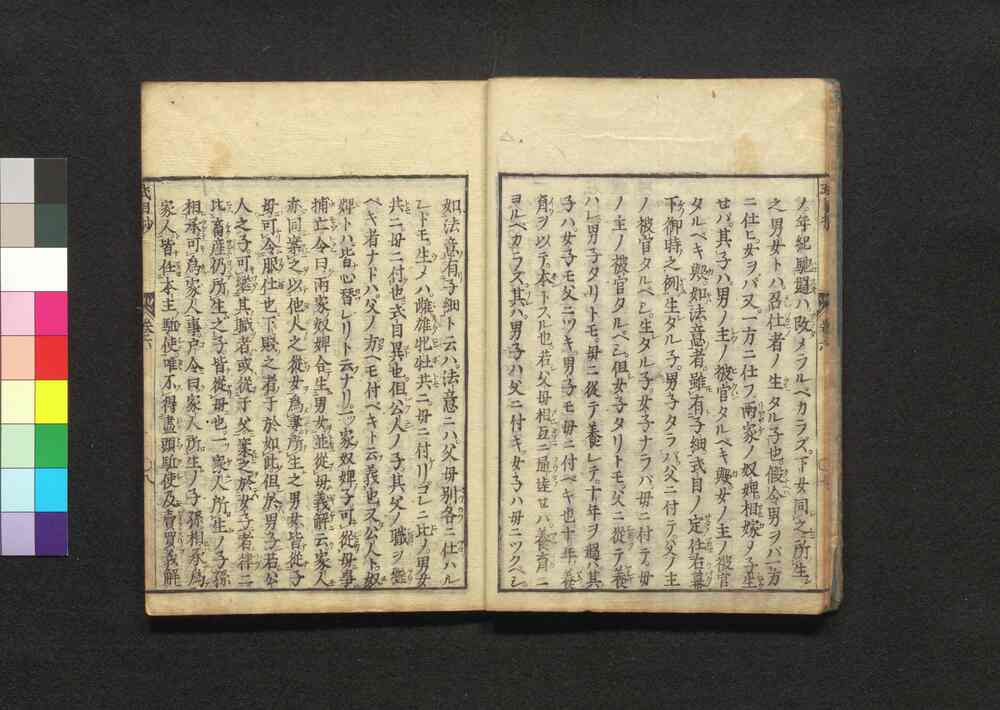 ノ年紀馳過ハ改メラルベカラズ下女同之所生
之男女トハ召仕者ノ生タル子也假令男ヲバ一方
ニ仕ヒ女ヲバ又一方ニ仕フ兩家ノ奴婢相嫁ヲ子生
セハ其子ハ男ノ主ノ被官タルベキ歟女ノ主ノ被官
タルベキ歟如法意者雖有子細式目ノ定任右幕
下御時之例生タル子男子タラバ父ニ付テ父ノ主
ノ被官タルベシ生タル子女子ナラバ母ニ付テ母
ノ主ノ被官タルベシ但女子タリトモ父ニ從テ養
ハレ男子タリトモ母ニ從テ養レテ十年ヲ過バ其
子ハ女子モ父ニツキ男子モ母ニ付ベキ也十年養
育ヲ以テ本トスル也若父母相互ニ違セハ養育ニ
ヨルベカラス其ハ男子ハ父ニ付キ女子ハ母ニツクベシ
如法意有子細ト云ハ法意ニハ父母別各ニ仕ハル
レトモ生ノハ雌雄牝牡共ニ母ニ付リコレニ比ノ男女
共ニ母ニ付也式目異也但公人ノ子其父ノ職ヲ繼
ベキ者ナドハ父ノ方ヘモ付ベキト云義也又公人ト奴
婢トハ皆心替レリト云ナリ一家奴婢子可從母事
捕亡令曰兩家奴婢合生男女並從母義解云家人
亦同案之以他人之從女爲妻所生之男女皆從子
母可令服仕也下賤之者于於如此但於男子若公
人之子可繼其職者或從于父案之於女子者律ニ
比畜産仍所生之子皆從母也一家人所生ノ子孫
相承可爲家人事戸令曰家人所生ノ子孫相承爲
家人皆任本主驅使唯不得盡頭驅使及賣買義解